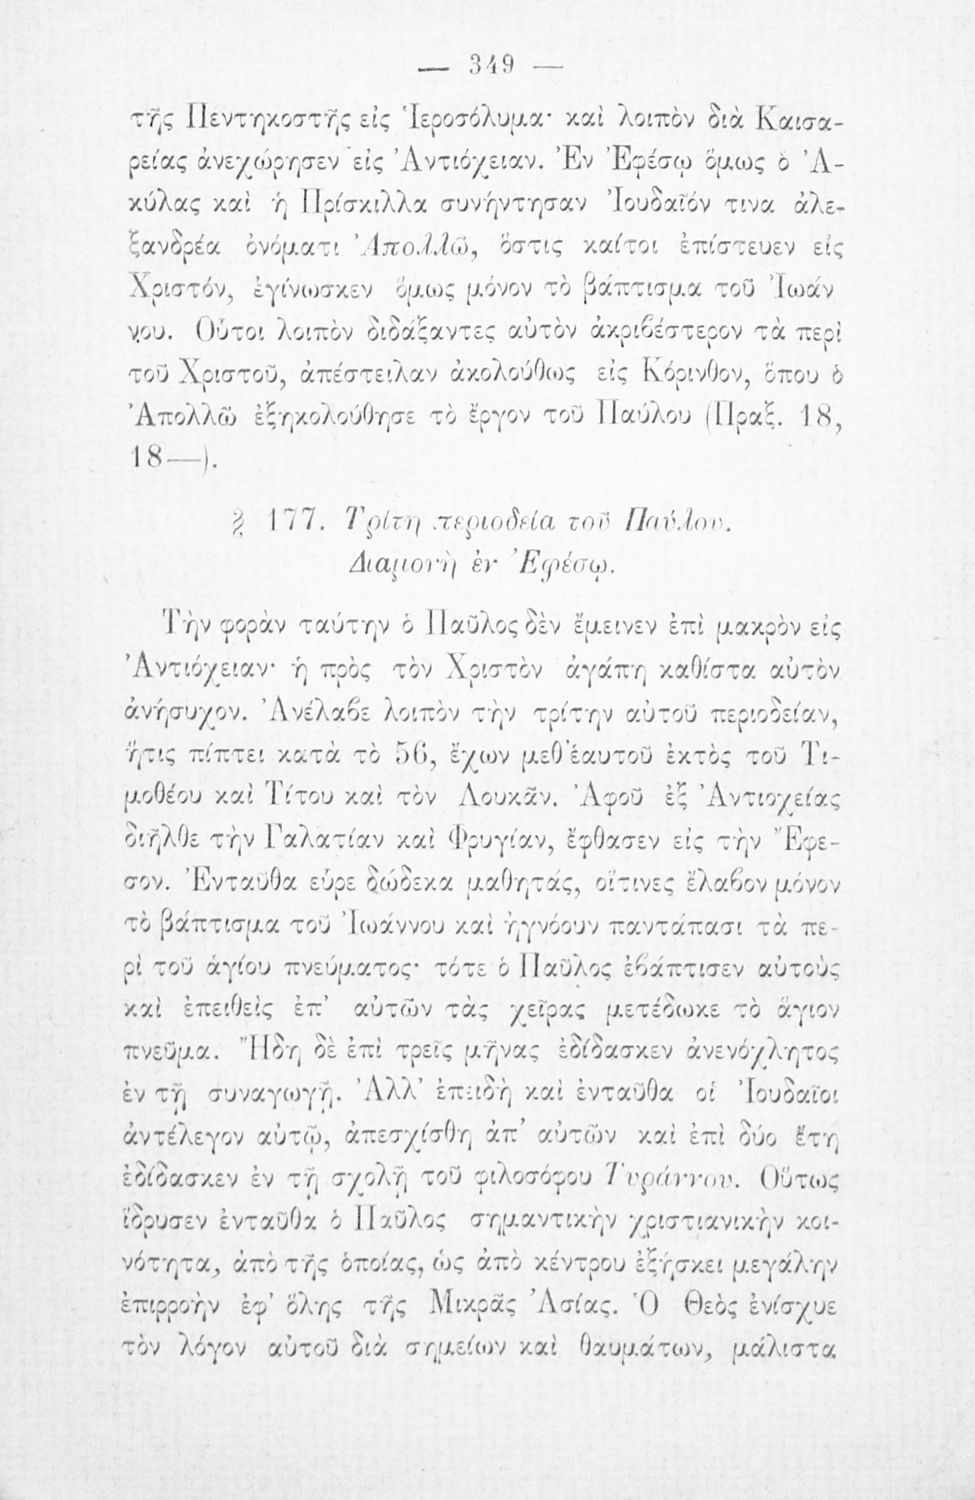 — 349 —
τῆς Πεντηκοστῆς εἰς Ἱεροσόλυμα· καὶ λοιπὸν διὰ Καισα-
ρείας ἀνεχώρησεν εἰς Ἀντιόχειαν. Ἐν Ἐφέσῳ ὅμως ὁ Ἀ-
κύλας καὶ ἡ Πρίσκιλλα συνήντησαν Ἰουδαῖόν τινα ἀλε-
ξανδρέα ὀνόματι Ἀπολλῶ, ὅστις καίτοι ἐπίστευεν εἰς
Χριστόν, ἐγίνωσκεν ὅμως μόνον τὸ βάπτισμα τοῦ Ἰωάν
νου. Οὗτοι λοιπὸν διδάξαντες αὐτὸν ἀκριβέστερον τὰ περὶ
τοῦ Χριστοῦ, ἀπέστειλαν ἀκολούθως εἰς Κόρινθον, ὅπου ὁ
Ἀπολλῶ ἐξηκολούθησε τὸ ἔργον τοῦ Παύλου (Πραξ. 18,
18—).
§ 177. Τρίτη περιοδεία τοῦ Παύλου.
Διαμονὴ ἐν Ἐφέσῳ.
Τὴν φορὰν ταύτην ὁ Παῦλος δὲν ἔμεινεν ἐπὶ μακρὸν εἰς
Ἀντιόχειαν· ἡ πρὸς τὸν Χριστὸν ἀγάπη καθίστα αὐτὸν
ἀνήσυχον. Ἀνέλαβε λοιπὸν τὴν τρίτην αὐτοῦ περιοδείαν,
ἥτις πίπτει κατὰ τὸ 56, ἔχων μεθ' ἑαυτοῦ ἐκτὸς τοῦ Τι-
μοθέου καὶ Τίτου καὶ τὸν Λουκᾶν. Ἀφοῦ ἐξ Ἀντιοχείας
διῆλθε τὴν Γαλατίαν καὶ Φρυγίαν, ἔφθασεν εἰς τὴν Ἔφε-
σον. Ἐνταῦθα εὗρε δώδεκα μαθητάς, οἵτινες ἔλαβον μόνον
τὸ βάπτισμα τοῦ Ἰωάννου καὶ ἠγνόουν παντάπασι τὰ πε-
ρὶ τοῦ ἁγίου πνεύματος· τότε ὁ Παῦλος ἐβάπτισεν αὐτοὺς
καὶ ἐπειθεὶς ἐπ' αὐτῶν τὰς χεῖρας μετέδωκε τὸ ἅγιον
πνεῦμα. Ἤδη δὲ ἐπὶ τρεῖς μῆνας ἐδίδασκεν ἀνενόχλητος
ἐν τῇ συναγωγῇ. Ἀλλ' ἐπειδὴ καὶ ἐνταῦθα οἱ Ἰουδαῖοι
ἀντέλεγον αὐτῷ, ἀπεσχίσθη ἀπ' αὐτῶν καὶ ἐπὶ δύο ἔτη
ἐδίδασκεν ἐν τῇ σχολῇ τοῦ φιλοσόφου Τυράννου. Οὕτως
ἵδρυσεν ἐνταῦθα ὁ Παῦλος σημαντικὴν χριστιανικὴν κοι-
νότητα, ἀπὸ τῆς ὁποίας, ὡς ἀπὸ κέντρου ἐξήσκει μεγάλην
ἐπιρροὴν ἐφ' ὅλης τῆς Μικρᾶς Ἀσίας. Ὁ Θεὸς ἐνίσχυε
τὸν λόγον αὐτοῦ διὰ σημείων καὶ θαυμάτων, μάλιστα